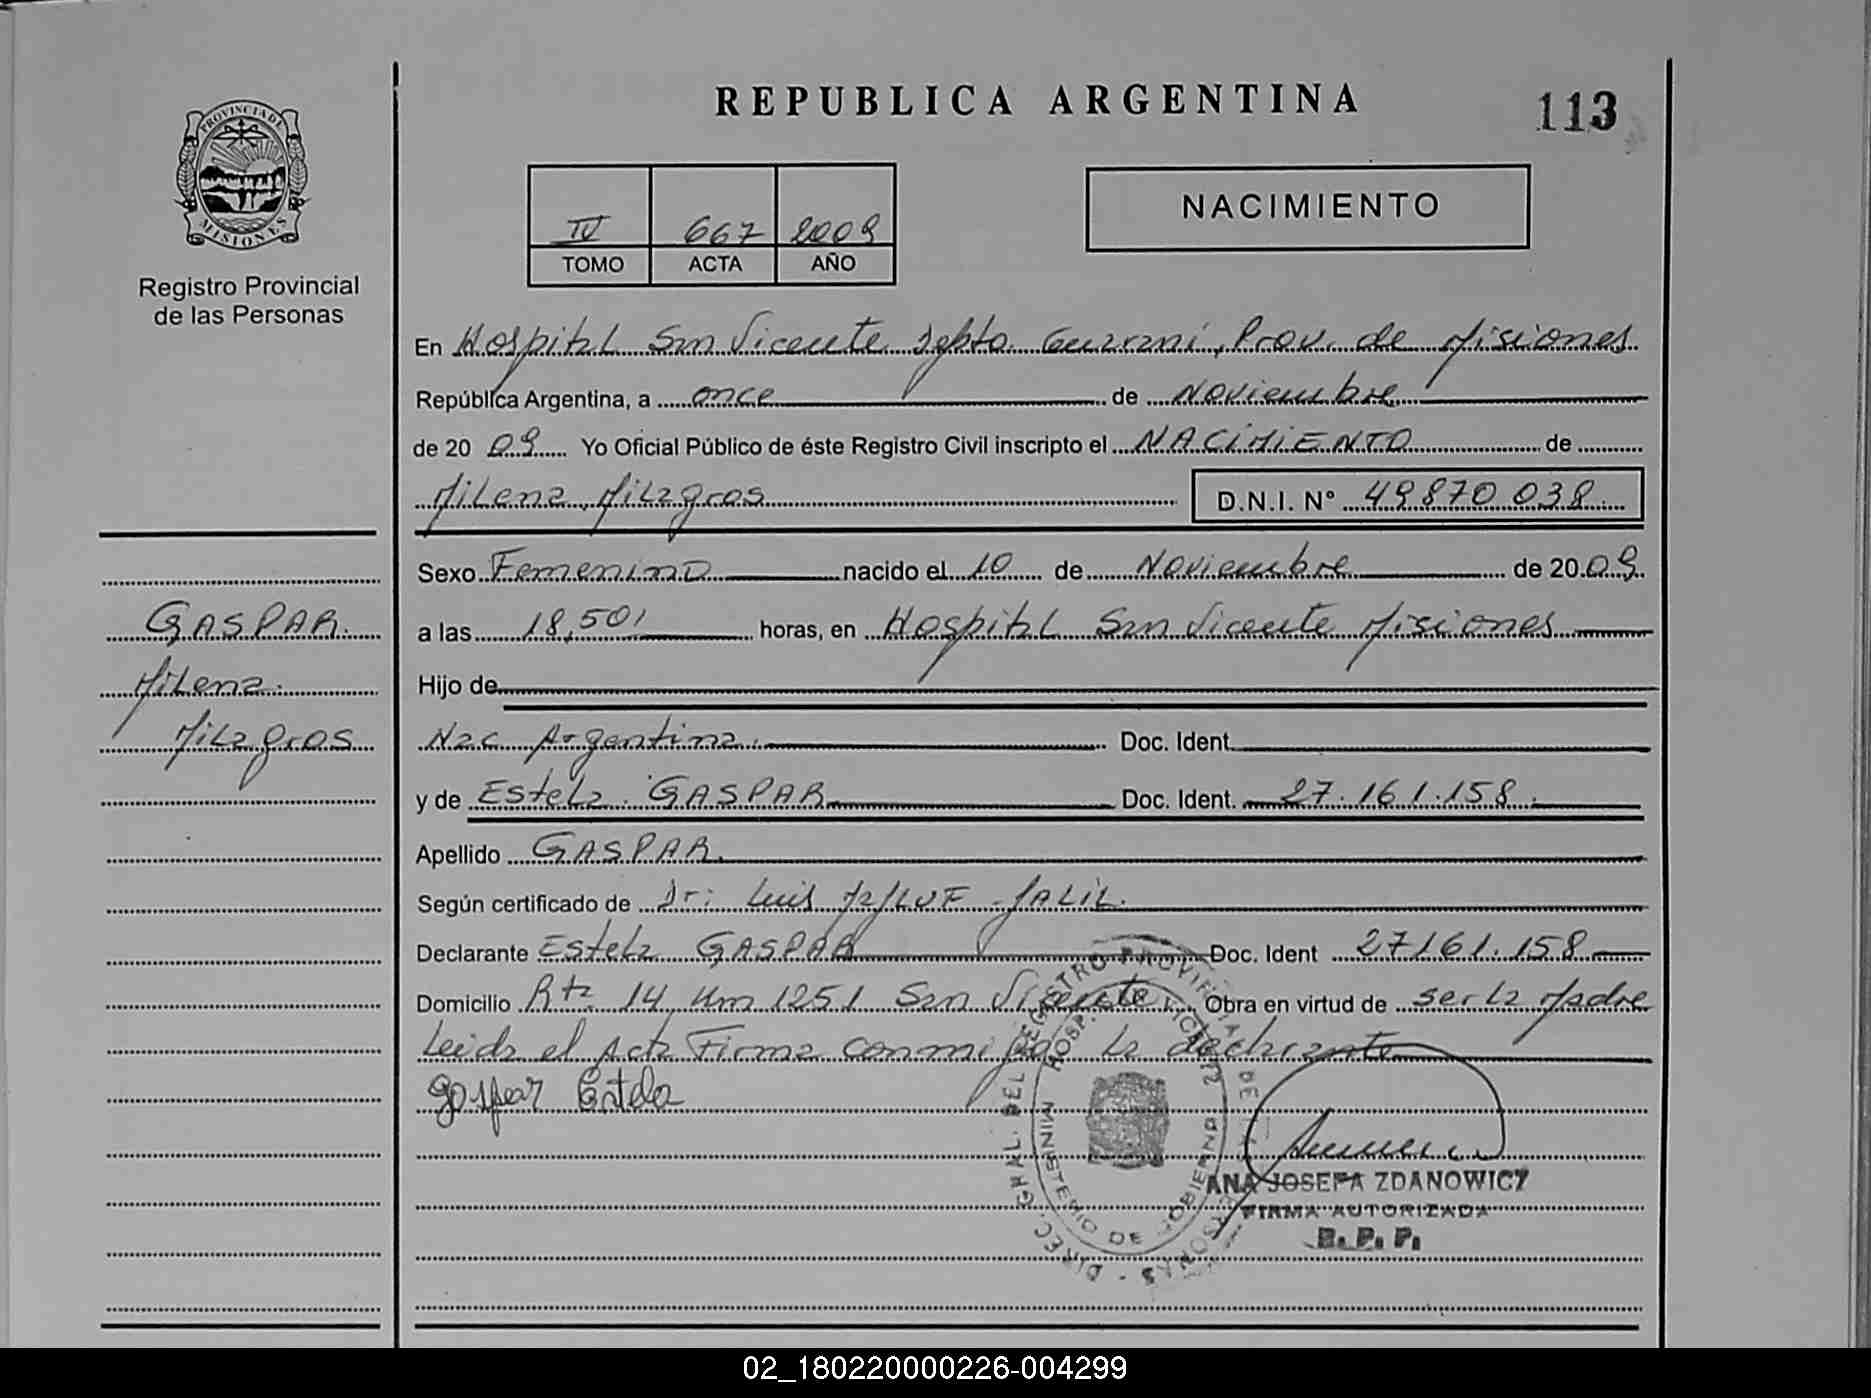 REPUBLICA ARGENTINA
113
PROVINCIA DE
MISIONES
Registro Provincial
de las Personas
NACIMIENTO
IV 667 2009
TOMO ACTA AÑO
En Hospital San Vicente Dpto. Guaraní, Prov. de Misiones
República Argentina, a once de Noviembre
de 20 09 Yo Oficial Público de éste Registro Civil inscripto el NACIMIENTO de
Milena Milagros D.N.I. Nº 49870.038
Sexo Femenino nacido el 10 de Noviembre de 20 09
GASPAR.
Milena.
Milagros
a las 18,50' horas, en Hospital San Vicente Misiones
Hijo de
Nac Argentina. Doc. Ident.
y de Estela GASPAR Doc. Ident. 27.161.158.
Apellido GASPAR.
Según certificado de Dr: Luis JALIL.
Declarante Estela GASPAR Doc. Ident 27161.158
Domicilio Rta 14 Km 1251 San Vicente Obra en virtud de ser la Madre
Leida el Acta Firma conmigo la declarante
gaspar Estela
DIREC. GRAL. DEL REGISTRO PROVINCIAL DE LAS PERSONAS
HOSP. S. VICENTE
MINISTERIO DE GOBIERNO
ANA JOSEFA ZDANOWICZ
FIRMA AUTORIZADA
R. P. P.
02_180220000226-004299